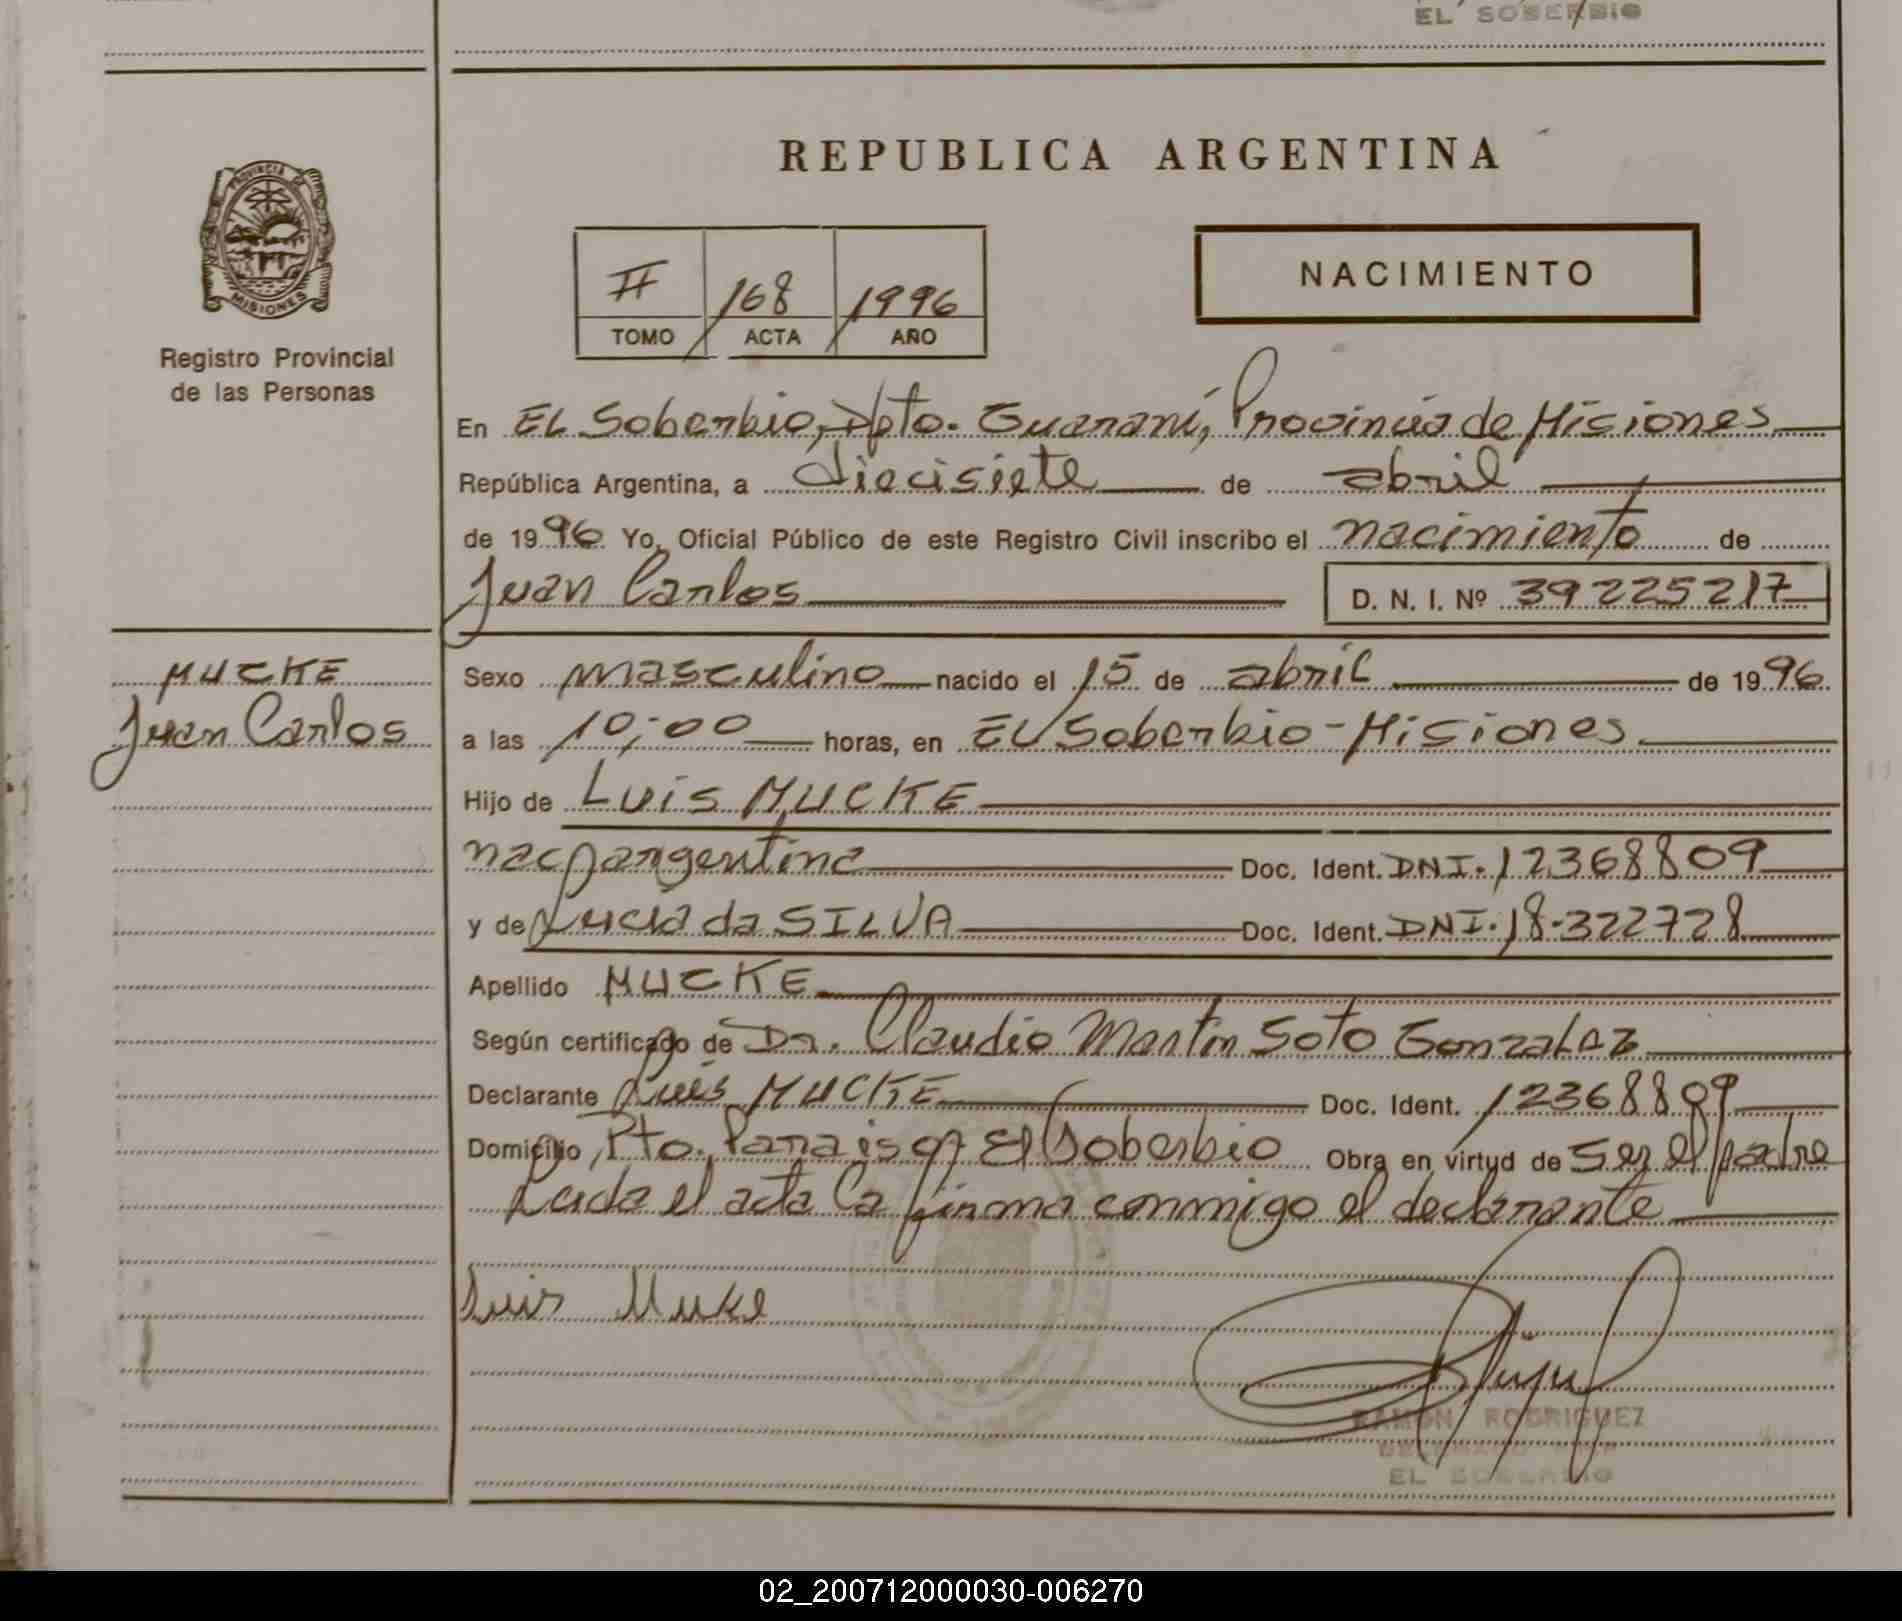 EL SOBERBIO
REPUBLICA ARGENTINA
PROVINCIA DE
MISIONES
Registro Provincial
de las Personas
II 168 1996
TOMO ACTA AÑO
NACIMIENTO
En El Soberbio, Dpto. Guaraní, Provincia de Misiones
República Argentina, a diecisiete de abril
de 1996 Yo, Oficial Público de este Registro Civil inscribo el nacimiento de
Juan Carlos D. N. I. Nº 39225217
MUCKE
Juan Carlos
Sexo masculino nacido el 15 de abril de 1996
a las 10:00 horas, en El Soberbio-Misiones
Hijo de Luis MUCKE
nac argentina Doc. Ident. DNI. 12368809
y de Lucia da SILVA Doc. Ident. DNI. 18.322728
Apellido MUCKE
Según certificado de Dr. Claudio Martin Soto Gonzalez
Declarante Luis MUCKE Doc. Ident. 12368809
Domicilio Pto. Paraiso, El Soberbio Obra en virtud de ser el padre
Leida el acta la firma conmigo el declarante
Luis Muke
RAMON RODRIGUEZ
EL SOBERBIO
02_200712000030-006270